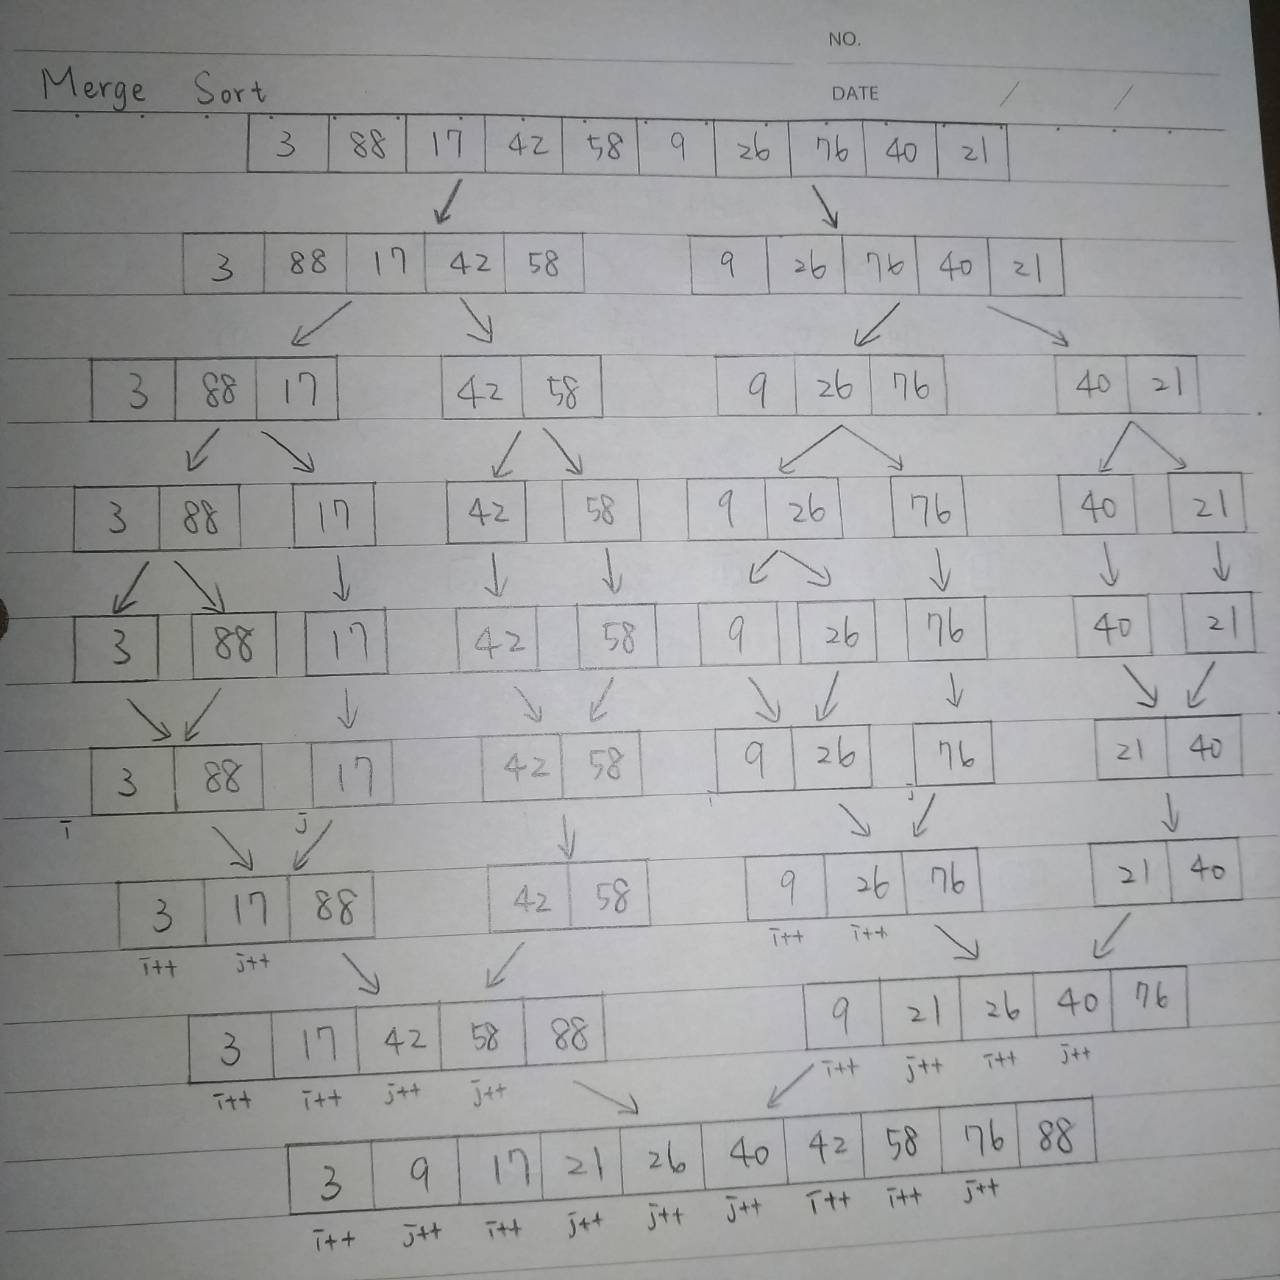 NO.
Merge Sort
DATE / /
3 88 17 42 58 9 26 76 40 21
3 88 17 42 58 9 26 76 40 21
3 88 17 42 58 9 26 76 40 21
3 88 17 42 58 9 26 76 40 21
3 88 17 42 58 9 26 76 40 21
3 88 17 42 58 9 26 76 21 40
i j i j
3 17 88 42 58 9 26 76 21 40
i++ j++ i++ i++
3 17 42 58 88 9 21 26 40 76
i++ i++ j++ j++ i++ j++ i++ j++
3 9 17 21 26 40 42 58 76 88
i++ j++ i++ j++ j++ j++ i++ i++ j++